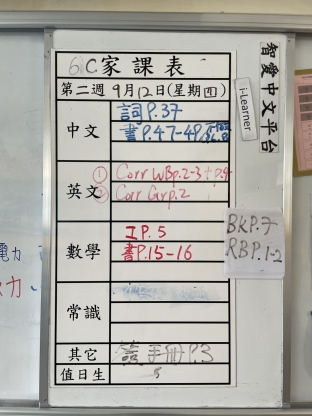 6C家課表
第二週 9月12日(星期四)
智愛中文平台
i-Learner
中文
詞P.37
書P.47-49
英文
① Corr WBp.2-3 + p.9
② Corr Grp.2
數學
工P.5
書P.15-16
BKP.7
RBP.1-2
常識
其它
簽手冊P.3
值日生
5
電力
力